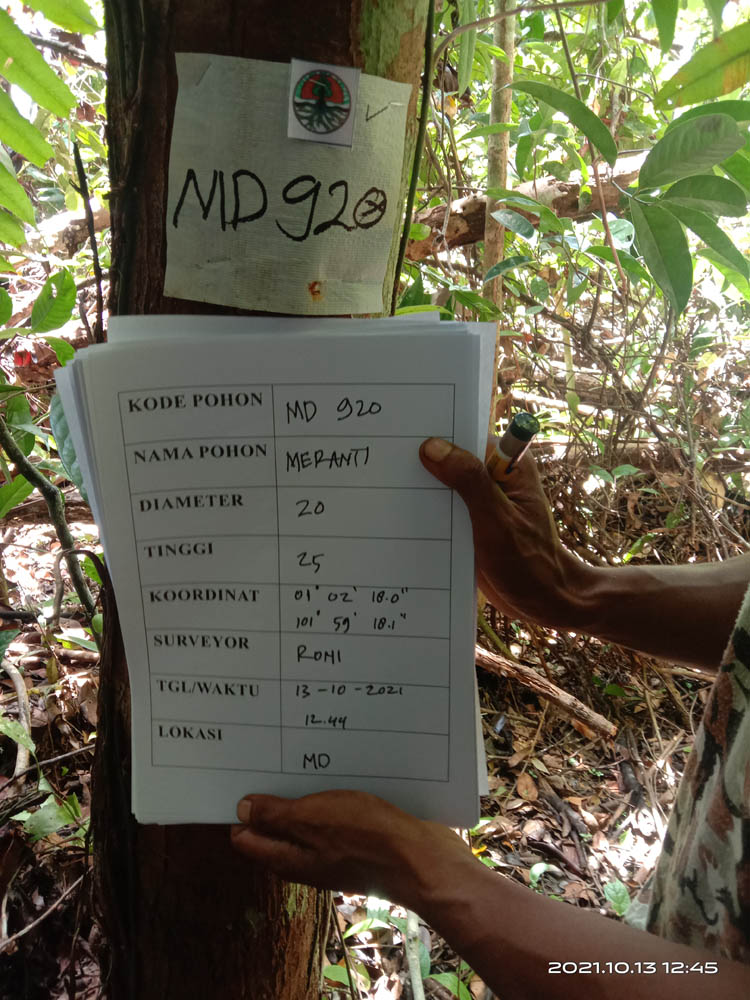 MD 920
KODE POHON MD 920
NAMA POHON MERANTI
DIAMETER 20
TINGGI 25
KOORDINAT 01° 02' 18.0"
101° 59' 18.1"
SURVEYOR RONI
TGL/WAKTU 13-10-2021
12.44
LOKASI MD
2021.10.13 12:45